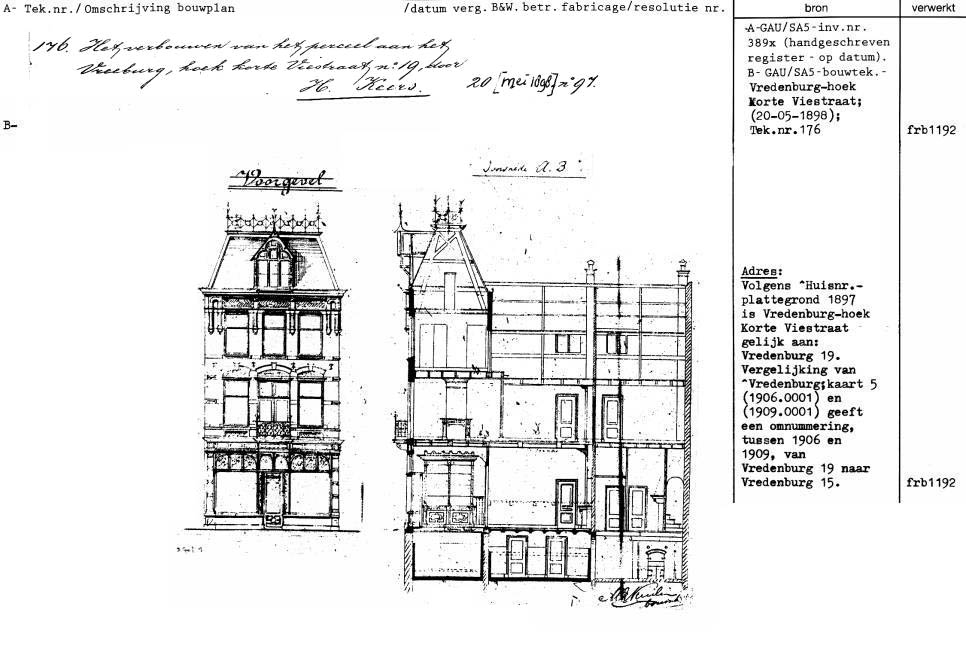 A- Tek.nr./ Omschrijving bouwplan /datum verg. B&W. betr. fabricage/resolutie nr. bron verwerkt
176. Het verbouwen van het perceel aan het
Vreeburg, hoek korte Viestraat, nº 19, door
H. Keers. 20 [mei 1898] nº 97.
A-GAU/SA5-inv.nr.
389x (handgeschreven
register - op datum).
B- GAU/SA5-bouwtek.-
Vredenburg-hoek
Korte Viestraat;
(20-05-1898);
Tek.nr.176 frb1192
B-
Voorgevel
Doorsnede A.B.
Adres:
Volgens ^Huisnr.-
plattegrond 1897
is Vredenburg-hoek
Korte Viestraat
gelijk aan:
Vredenburg 19.
Vergelijking van
^Vredenburg;kaart 5
(1906.0001) en
(1909.0001) geeft
een omnummering,
tussen 1906 en
1909, van
Vredenburg 19 naar
Vredenburg 15. frb1192